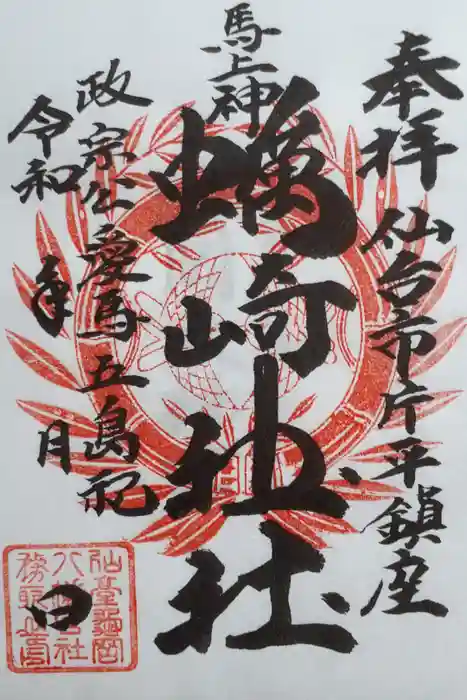 奉拝 仙台市片平鎮座
馬上神
蠣崎神社
政宗公愛馬五島祀
令和 年 月 日
仙臺龜岡
八幡宮社
務所之印